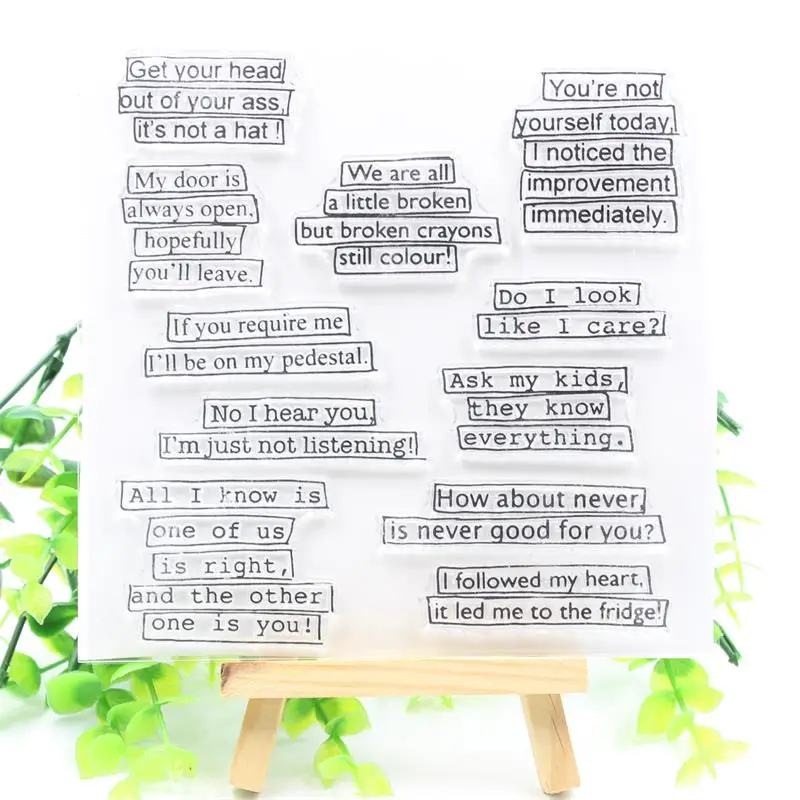 Get your head
out of your ass,
it's not a hat !
You're not
yourself today,
I noticed the
improvement
immediately.
My door is
always open,
hopefully
you'll leave.
We are all
a little broken
but broken crayons
still colour!
Do I look
like I care?
If you require me
I'll be on my pedestal.
Ask my kids,
they know
everything.
No I hear you,
I'm just not listening!
All I know is
one of us
is right,
and the other
one is you!
How about never,
is never good for you?
I followed my heart,
it led me to the fridge!